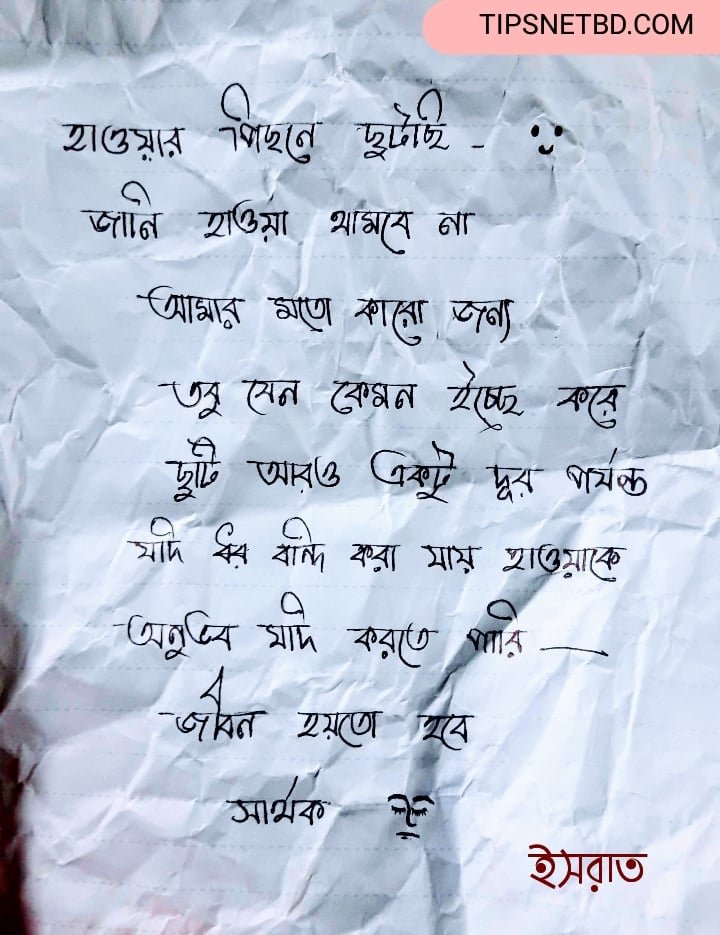 TIPSNETBD.COM
হাওয়ার পিছনে ছুটছি -
জানি হাওয়া থামবে না
আমার মতো কারো জন্য
তবু যেন কেমন ইচ্ছে করে
ছুটি আরও একটু দূর পর্যন্ত
যদি ধর বন্দি করা যায় হাওয়াকে
অনুভব যদি করতে পারি —
জীবন হয়তো হবে
সার্থক
ইসরাত